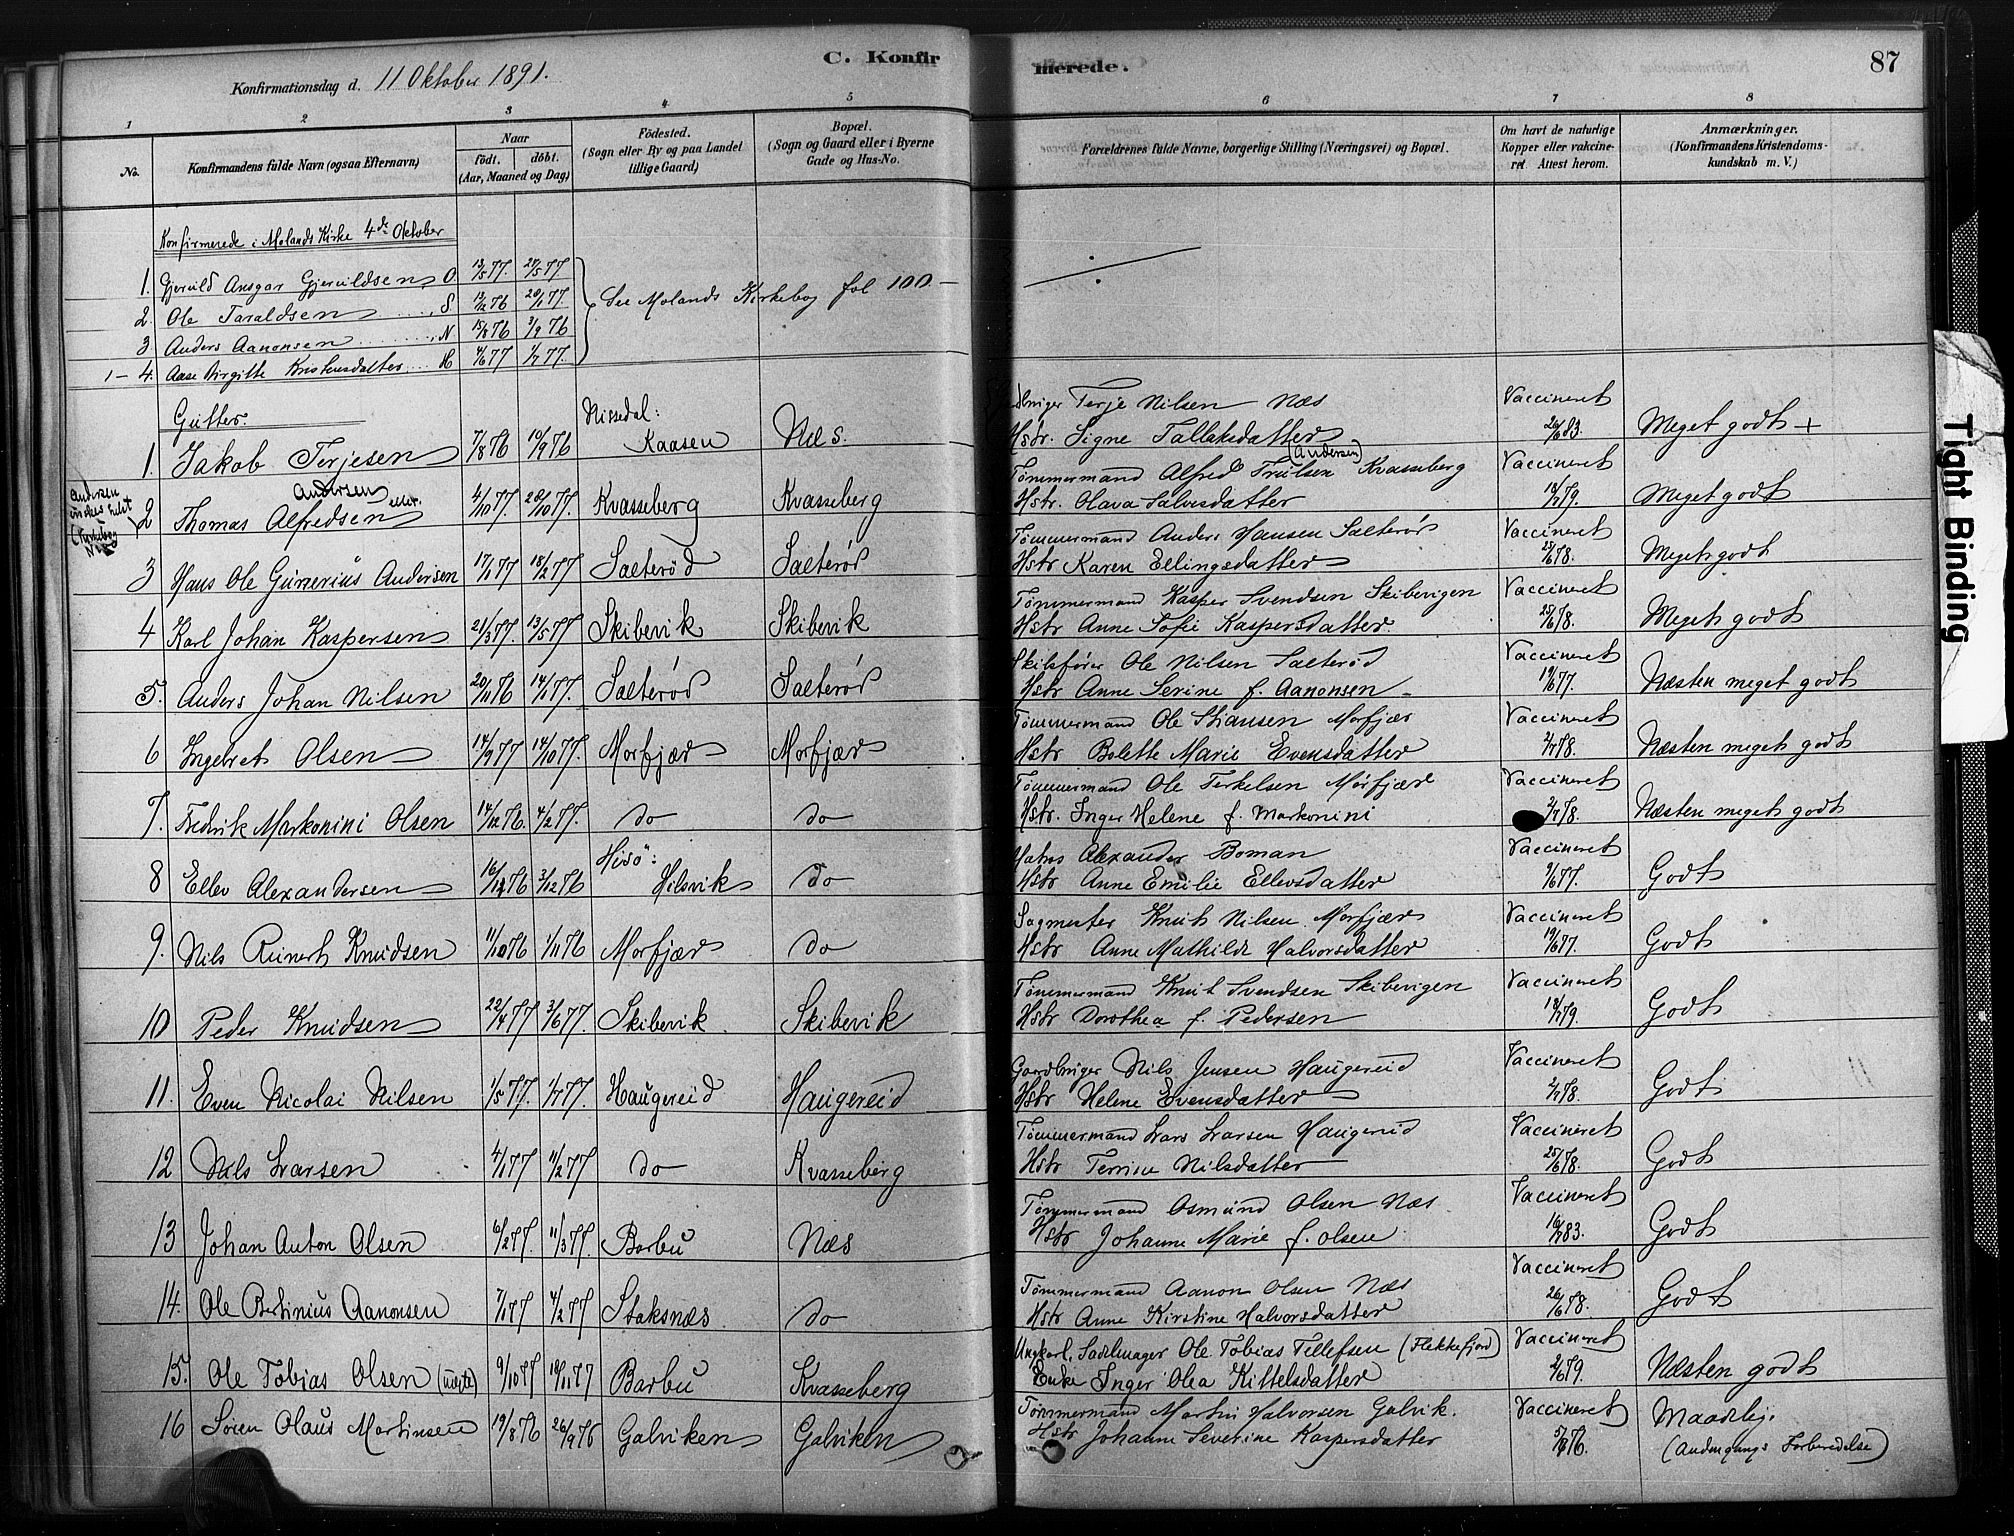 C. Konfirmerede.
87
Konfirmationsdag d. 11 Oktober 1891.
1 2 3 4 5 6 7 8
No.
Konfirmandens fulde Navn (ogsaa Efternavn)
Naar
födt. döbt.
(Aar, Maaned og Dag)
Födested.
(Sogn eller By og paa Landet
tillige Gaard)
Bopæl.
(Sogn og Gaard eller i Byerne
Gade og Hus-No.
Forældrenes fulde Navne, borgerlige Stilling (Næringsvei) og Bopæl.
Om havt de naturlige
Kopper eller vakcine-
ret Attest herom.
Anmærkninger.
(Konfirmandens Kristendoms-
kundskab m. V.)
Konfirmerede i Molands Kirke 4de Oktober
1. Gjeruld Ansgar Gjeruldsen O 13/5 77. 27/5 77
2. Ole Taraldsen S 12/12 76 20/1 77.
3. Anders Aanonsen N 15/8 76 3/9 76
1-4. Aase Birgitte Kristensdatter H 4/6 77 1/7 77.
See Molands Kirkebog fol 100.-
Gutter.
1. Jakob Terjesen 7/8 76 10/9 76 Nissedal: Kaasen Næs.
Terje Nilsen Næs
Hstr. Signe Tallaksdatter
Vaccineret 26/6 83. Meget godt +
2 Thomas Alfredsen eller Andersen 4/10 77. 28/10 77. Kvasseberg Kvasseberg
Tömmermand Alfred Trulsen (Andersen) Kvasseberg
Hstr. Olava Salvesdatter
Vaccineret 18/7 79. Meget godt
3 Hans Ole Gunerius Andersen 17/1 77 18/2 77 Salteröd Salteröd
Tömmermand Anders Hansen Salteröd
Hstr Karen Ellingsdatter
Vaccineret 25/6 78. Meget godt
4 Karl Johan Kaspersen 21/3 77. 13/5 77 Skibevik Skibevik
Tömmermand Kasper Svendsen Skibevigen
Hstr Anne Sofie Kaspersdatter
Vaccineret 25/6 78. Meget godt
5. Anders Johan Nilsen 20/11 76 14/1 77. Salteröd Salteröd
Skibsförer Ole Nilsen Salteröd
Hstr Anne Serine f. Aanonsen
Vaccineret 19/6 77. Næsten meget godt
6 Ingebret Olsen 14/9 77 14/10 77. Morfjær Morfjær
Tömmermand Ole Stiansen Morfjær
Hstr Bolette Marie Evensdatter
Vaccineret 2/7 78. Næsten meget godt
7. Fredrik Markonini Olsen 14/12 76. 4/2 77. do do
Tömmermand Ole Terkelsen Morfjær
Hstr. Inger Helene f. Markonini
Vaccineret 2/7 78. Næsten meget godt
8 Ellev Alexandersen 3/12 76 Hisö: Hilsvik do
Matros Alexander Boman
Hstr Anne Emilie Ellevsdatter
Vaccineret 9/6 77. Godt
9. Nils Reinert Knudsen 1/11 76 Morfjær do
Sagmester Knut Nilsen Morfjær
Hstr Anne Mathilde Halvorsdatter
Vaccineret 19/6 77. Godt
10 Peder Knudsen 22/4 77 3/6 77. Skibevik Skibevik
Tömmermand Knut Svendsen Skibevigen
Hstr Dorothea f. Pedersen
Vaccineret 18/7 79. Godt
11. Even Nicolai Nilsen 1/5 77. 1/7 77. Haugereid Haugereid
Gaardbruger Nils Jensen Haugereid
Hstr Helene Evensdatter
Vaccineret 2/7 78. Godt
12 Nils Larsen 4/1 77 11/2 77 do Kvasseberg
Tömmermand Lars Larsen Haugereid
Hstr Terrine Nilsdatter
Vaccineret 25/6 78. Godt
13 Johan Anton Olsen 6/2 77. 11/3 77. Barbu Næs
Tömmermand Osmund Olsen Næs
Hstr Johanne Marie f. Olsen
Vaccineret 83. Godt
14. Ole Bertinius Aanonsen 7/1 77 4/2 77 Staksnæs do
Tömmermand Aanon Olsen Næs
Hstr Anne Kirstine Halvorsdatter
Vaccineret 26/6 78. Godt
15. Ole Tobias Olsen (uægte) 9/10 77 18/11 77 Barbu Kvasseberg
Ungkarl, Sadelmager Ole Tobias Tellefsen (Flekkefjord)
Enke Inger Olea Kittelsdatter
Vaccineret 79. Næsten godt
16 Sören Olaus Martinsen 19/8 76 26/9 76 Galviken Galviken
Tömmermand Martin Halvorsen Galvik.
Hstr Johanne Severine Kaspersdatter
Vaccineret 76. Maadelig.
(Andengangs Forberedelse)
Tight Binding